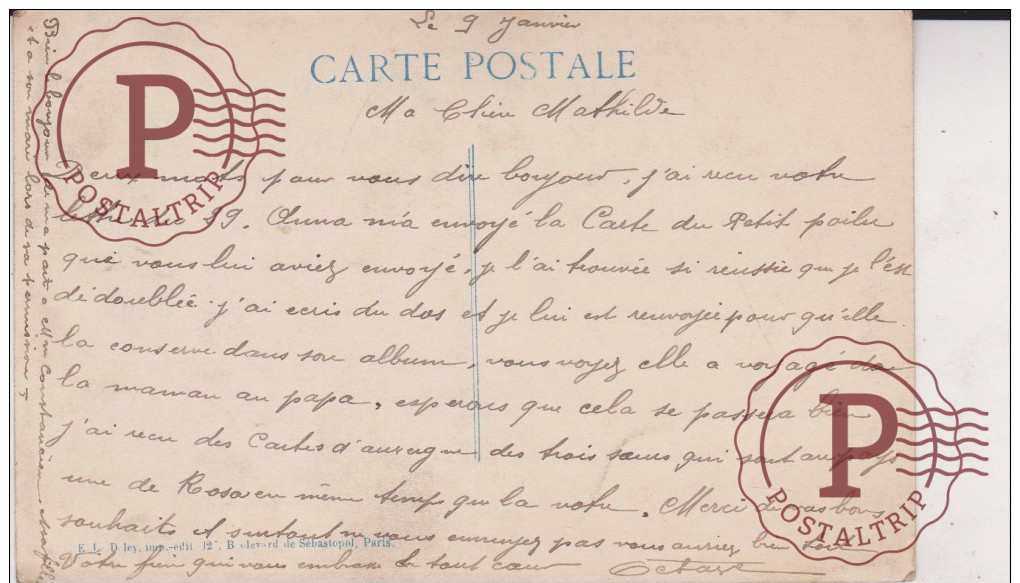 Le 9 Janvier
CARTE POSTALE
Ma Chère Mathilde
Deux mots pour vous dire bonjour, j'ai recu votre
lettre du 29. Anna m'a envoyé la Carte du Petit poilu
que vous lui aviez envoyé, je l'ai trouvée si réussie que je l'est
dédoublée j'ai ecris du dos et je lui est renvoyée pour qu'elle
la conserve dans son album, vous voyez elle a voyagé de
la maman au papa, esperons que cela se passera bien
j'ai recu des Cartes d'auvergne des trois sœurs qui sont au pays
une de Rosa en même temps que la votre. Merci de vos bons
souhaits et surtout ne vous ennuyez pas vous auriez bien tort
Votre qui vous embrasse de tout cœur
Bien le bonjour de ma part a Mr Constancien
et a son mari lors de sa permission
E. L. D ley, imp.-edit 12, B ulevard de Sébastopol, Paris.
P
POSTALTRIP
P
POSTALTRIP